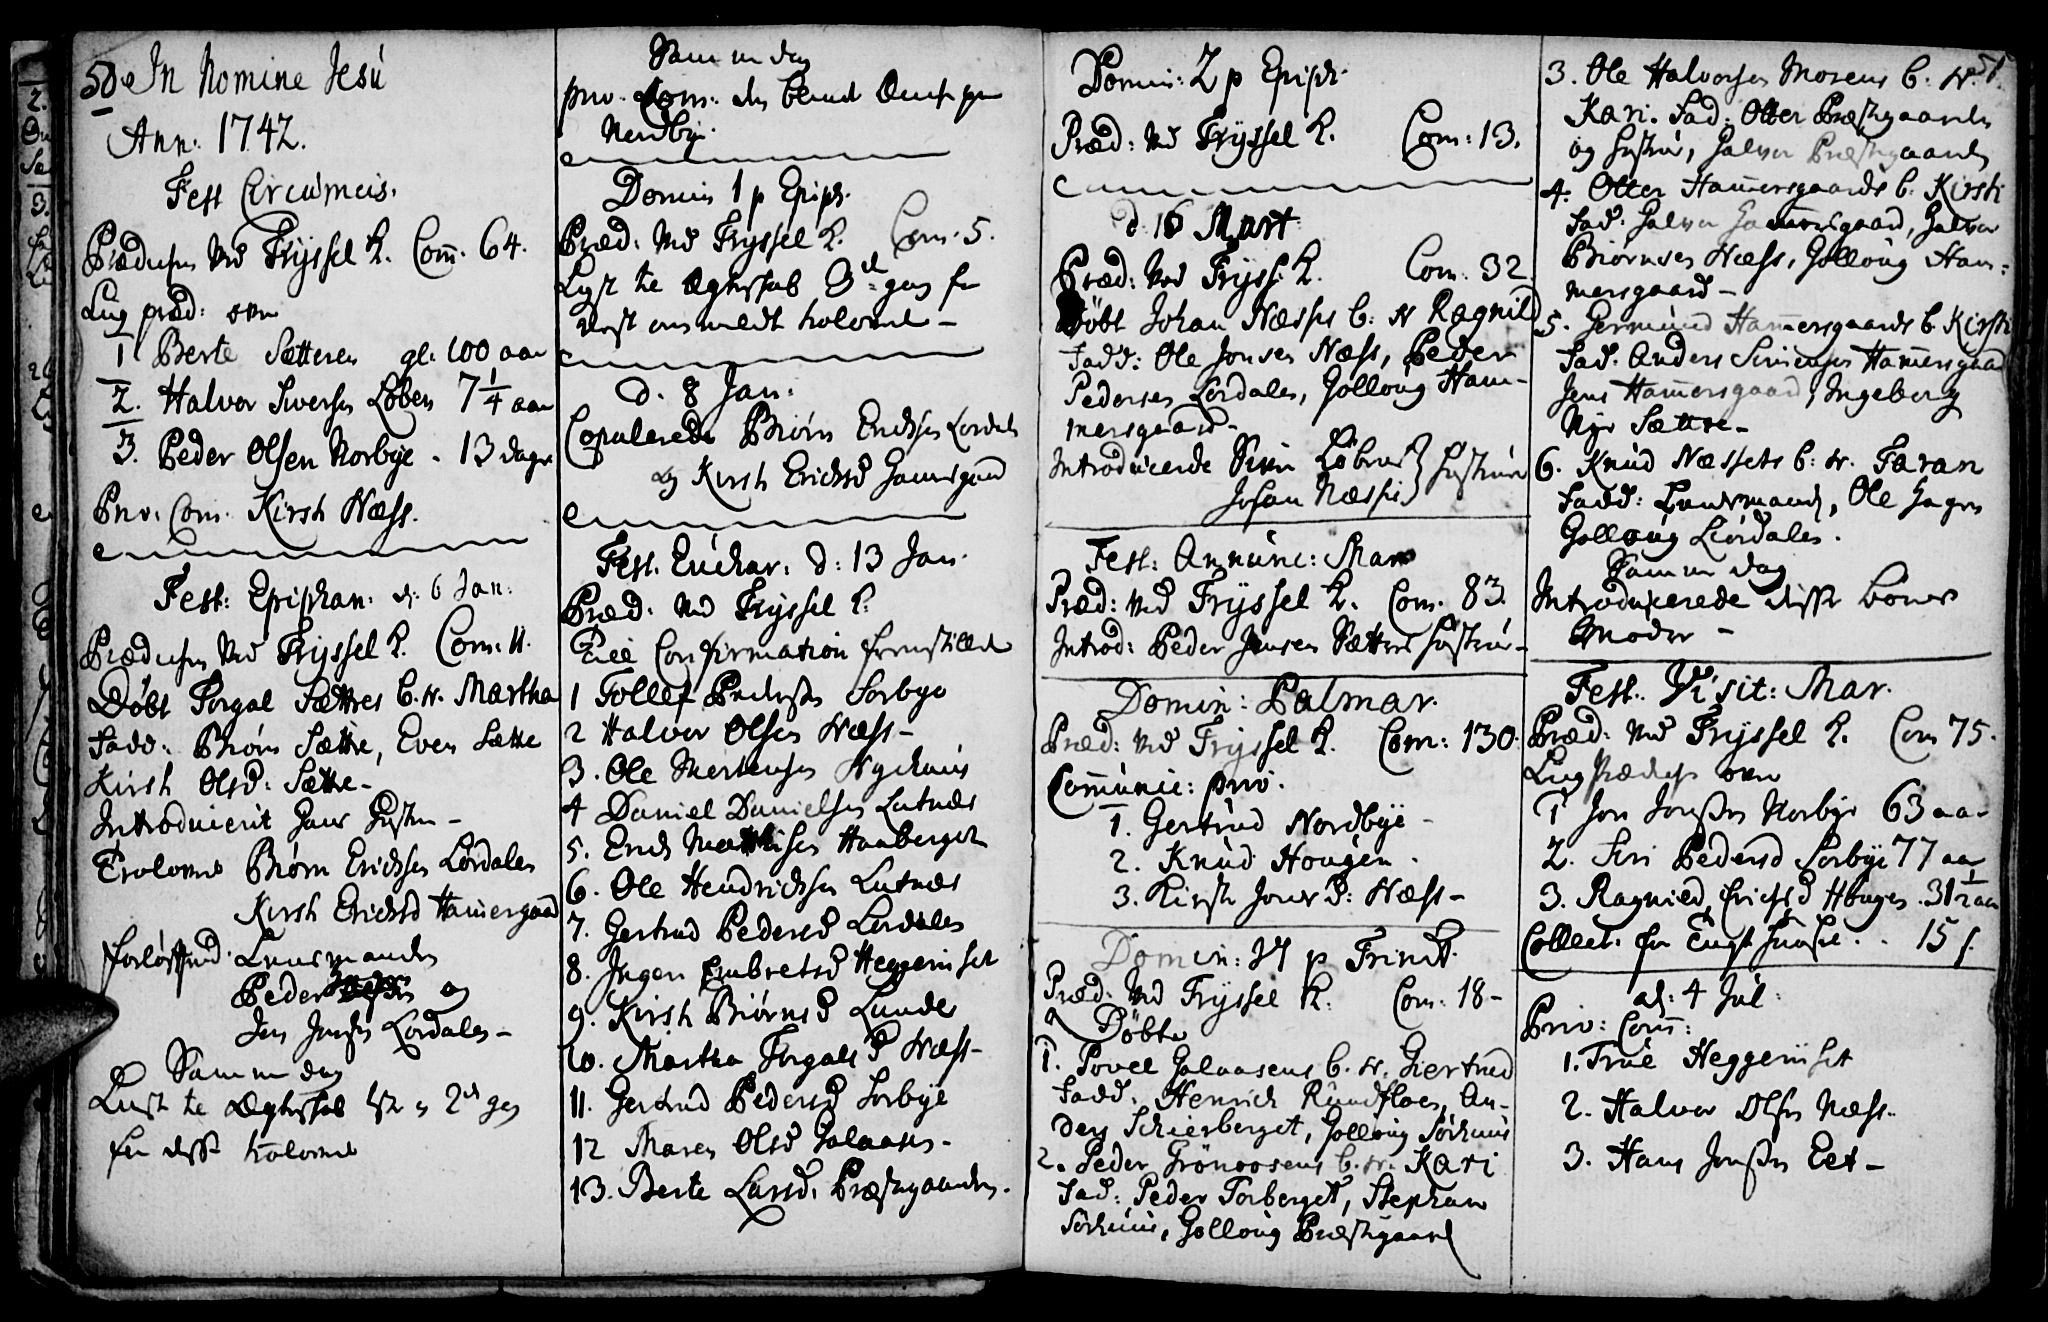 50.
In Nomine Jesú
Ann. 1742.
Fest Circúmcis.
Prædiken ved Trÿssel K. Com̄. 64.
Liig præd: over
1 Berte Sætteren gl: 100 aar
2. Halvor Siversen Løberg 7 1/4 aar
3. Peder Olsen Norbye - 13 dage
Priv. Com. Kirsti Næss.
Fest: Epiphan: d. 6 Jan:
Prædiken ved Trÿssel K. Com: 11.
Døbt Torgal Sættres b. N. Martha
Fadd: Biørn Sættre, Even Sættre
Kirsti Olsd: Sættre-
Introducerit hans Hustru -
Trolovede Biørn Erichsen Lørdalen
Kirsti Erichsd Ham̄ersgaard
forløftned: Lensmanden
Peder og
Jon Jonsen Lørdalen-
Samme dag
Lyst til Ægteskab 1ste og 2den gang
for disse trolovede
Samme dag
priv. Com:
Nordbÿe.
Domin 1 p Epiph.
Præd: ved Trÿssel K. Com. 5.
Lyst til Ægteskab 3de gang for
næst ommeldte trolovede -
d. 8 Jan:
Copulerede Biørn Erichsen Lørdalen
og Kirsti Erichsd Hamersgaard
Fest. Eúchar: d: 13 Jan.
Præd. ved Trÿssel K.
Till Confirmation fremstillet
1 Tollef Pedersen Sorbye
2 Halvor Olsen Næss-
3. Ole Mortensen Nÿehuus
4 Daniel Danielsen Lutnes
5. Erich Matthisen Haaberget
6. Ole Hendrichsen Lutnes
7. Gertrud Pedersd Lørdalen
8. Ingen Embretsd Heggeriset
9. Kirsti Biørnsd Lunde
10. Martha Torgals D Næss-
11. Gertrud Pedersd Sorbye
12 Maren Olsd Galaasen-
13. Berte Larsd: Præstegaarden.
Domin: 2 p Epiph.
Præd: ved Trÿssel K. Com: 13.
d. 16 Mart:
Præd: ved Tryss: K. Com: 32
Døbt Johan Næsses b: N Ragnild
Fadd: Ole Jonsen Næss, Peder
Pedersen Lørdalen, Golloug Ham-
mersgaard-
Introducerede Siver Løbergs } Hustruer
Johan Næsses
Fest: Annunc: Mar
Præd: ved Trÿssel K. Com. 83.
Introd: Peder Jensen Sættres Hustrue-
Domin: Palmar.
Præd: ved Trÿssel K. Com: 130.
Com̄únic: priv:
1. Gertrud Nordbÿe -
2. Knud Hougen.
3. Kirsti Jonsd: Næss-
Domin: 4 p Trinit.
Præd: ved Trÿssel K. Com: 18-
Døbte
1. Povel Galaasens b. N. Giertrud
Fadd: Henrich Rundfloen, An-
ders Schierberget, Golloug Sørhuus
2. Peder Grönoosens b. N. Kari
Fad: Peder Torberget, Stephan
Sørhuus, Golloug Præstegaard
51.
3. Ole Halvorsen Mosens b. N.
Kari. Fad: Otter Præstegaarden
og Hustrue, Halvor Præstegaarden
4. Otter Ham̄ersgaards b. Kirsti
Fad: Halvor Ham̄ersgaard, Halvor
Biørnsen Næss, Golloug Ham-
mersgaard-
5. Germund Ham̄ersgaards b. Kirsti
Fad. Anders Simensen Ham̄ersgaard
Jens Ham̄ersgaard, Ingeborg
Nÿe Sættre-
6. Knud Næssets b: N. Taran
Fadd: Lensmand, Ole Hagen
Golloug Lørdalen.
Samme dag
Introducerede disse børns
Moder -
Fest. Visit: Mar.
Præd: ved Trÿssel K. Com 75.
Liigprædiken over
1 Jon Jonssen Norbÿe 63 aar
2. Siri Pedersd Sorbÿe 77 aar
3. Ragnild Erichsd Hougen. 31 1/2 aar
Collect. for Tugthuset. - 15 s.
d: 4 Jul:
Priv: Com̄:
1. Trúe Heggeriset
2. Halvor Olsen Næss.
3. Hans Jonssen Eet-